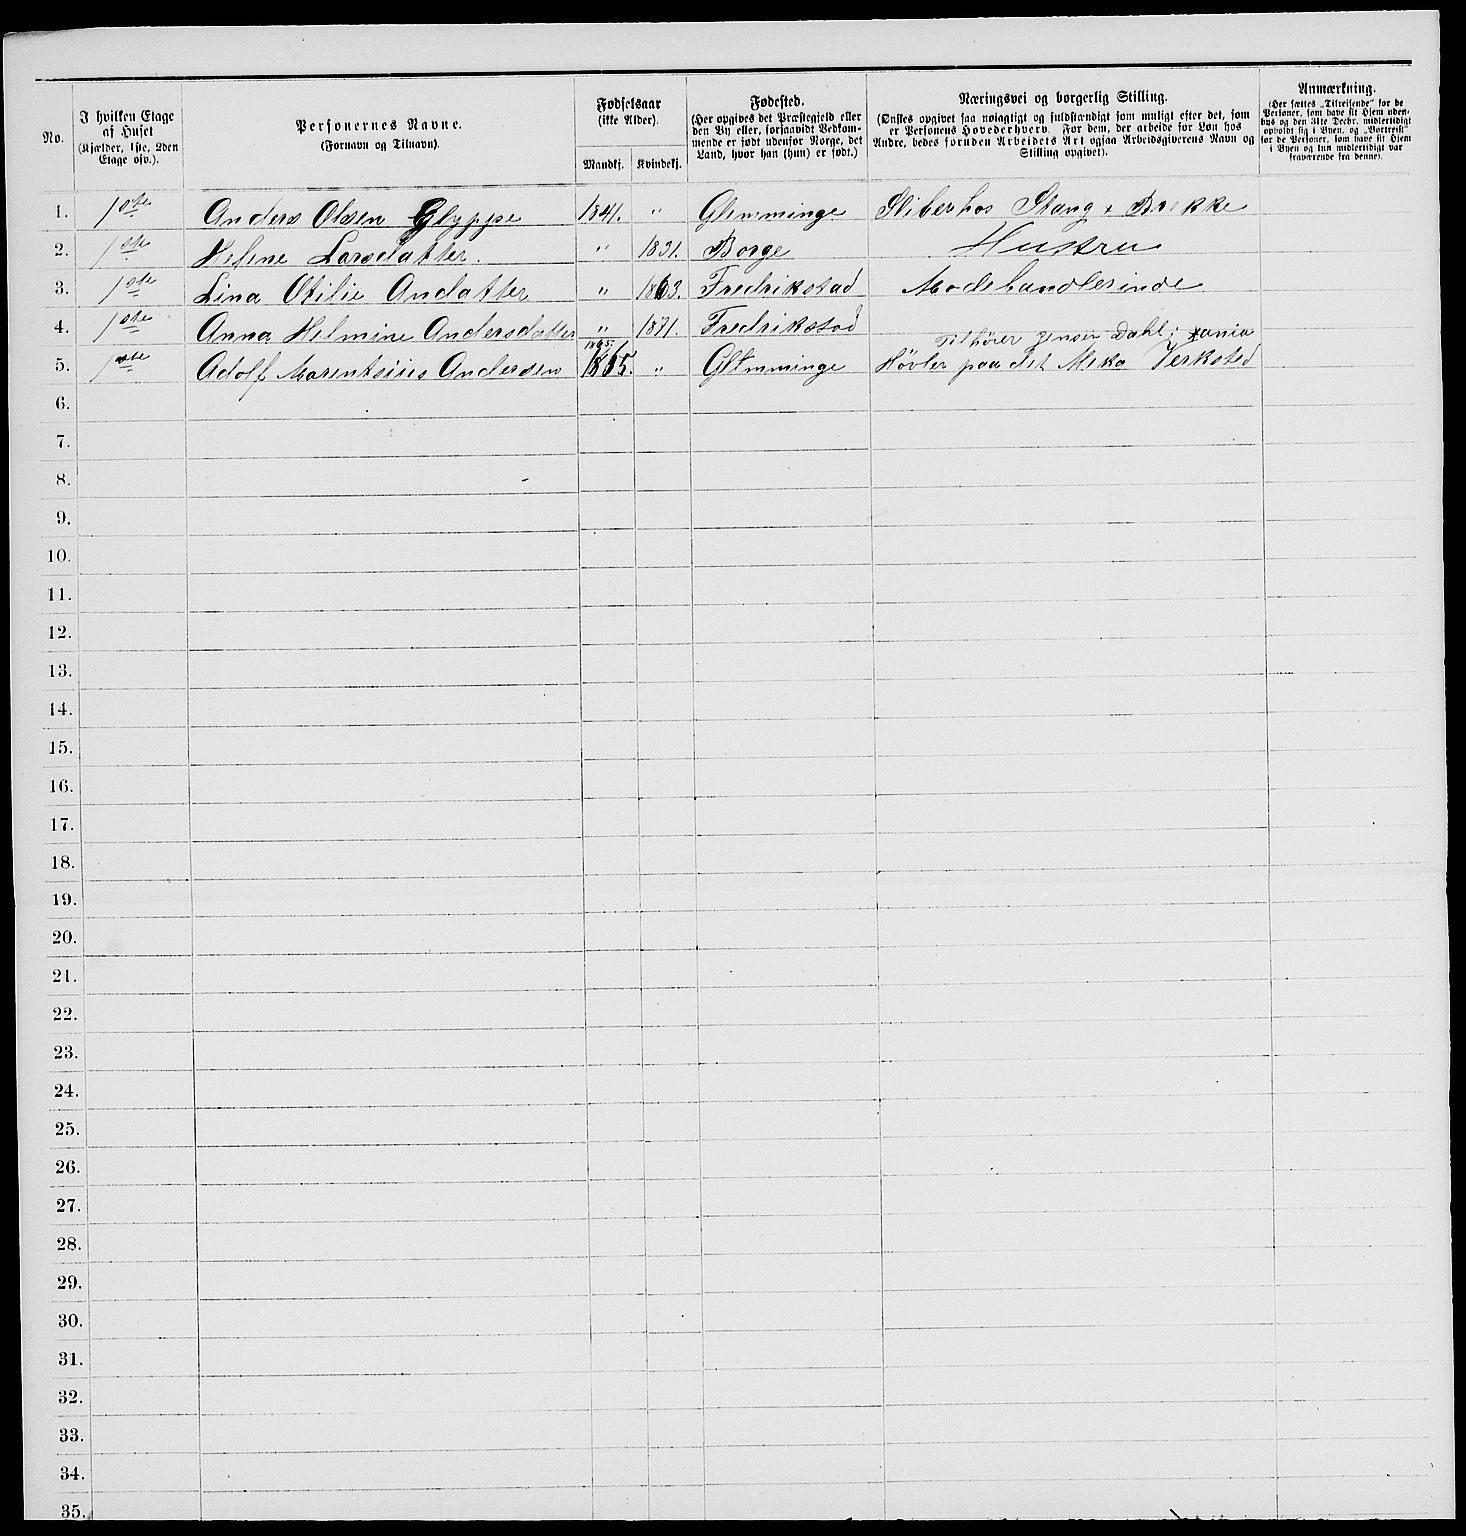 No.
I hvilken Etage af Huset
(Kjælder, 1ste, 2den Etage osv.).
Personernes Navne.
(Fornavn og Tilnavn).
Fødselsaar
(ikke Alder).
Mandkj. Kvindekj.
Fødested.
(Her opgives det Præstegjeld eller
den By eller, forsaavidt Vedkom-
mende er født udenfor Norge, det
Land, hvor han (hun) er født.)
Næringsvei og borgerlig Stilling.
(Ønskes opgivet saa nøiagtigt og fuldstændigt som muligt efter det, som
er Personens Hovederhverv. For dem, der arbeide for Løn hos
Andre, bedes foruden Arbeidets Art ogsaa Arbeidsgiverens Navn og
Stilling opgivet).
Anmærkning.
(Her sættes „Tilreisende" for de
Personer, som have sit Hjem uden-
bys og den 31te Decbr. midlertidigt
opholdt sig i Byen, og „Bortreist"
for de Personer, som have sit Hjem
i Byen og kun midlertidigt var
fraværende fra denne).
1. 1ste Anders Olsen Glyppe 1841. " Glemminge Sliber hos Stang & Brekke
2. 1ste Helene Larsdatter. " 1831. Borge Hustru
3. 1ste Lina Otilie Andatter " 1863. Fredrikstad Modehandlerinde
4. 1ste Anna Helmine Andersdatter " 1871. Fredrikstad
Tilhører Jensen Dahl; Xania
5. 1ste Adolf Marentsius Andersen 1865 1865. " Glemminge Høvler paa det Meka Verksted
6.
7.
8.
9.
10.
11.
12.
13.
14.
15.
16.
17.
18.
19.
20.
21.
22.
23.
24.
25.
26.
27.
28.
29.
30.
31.
32.
33.
34.
35.